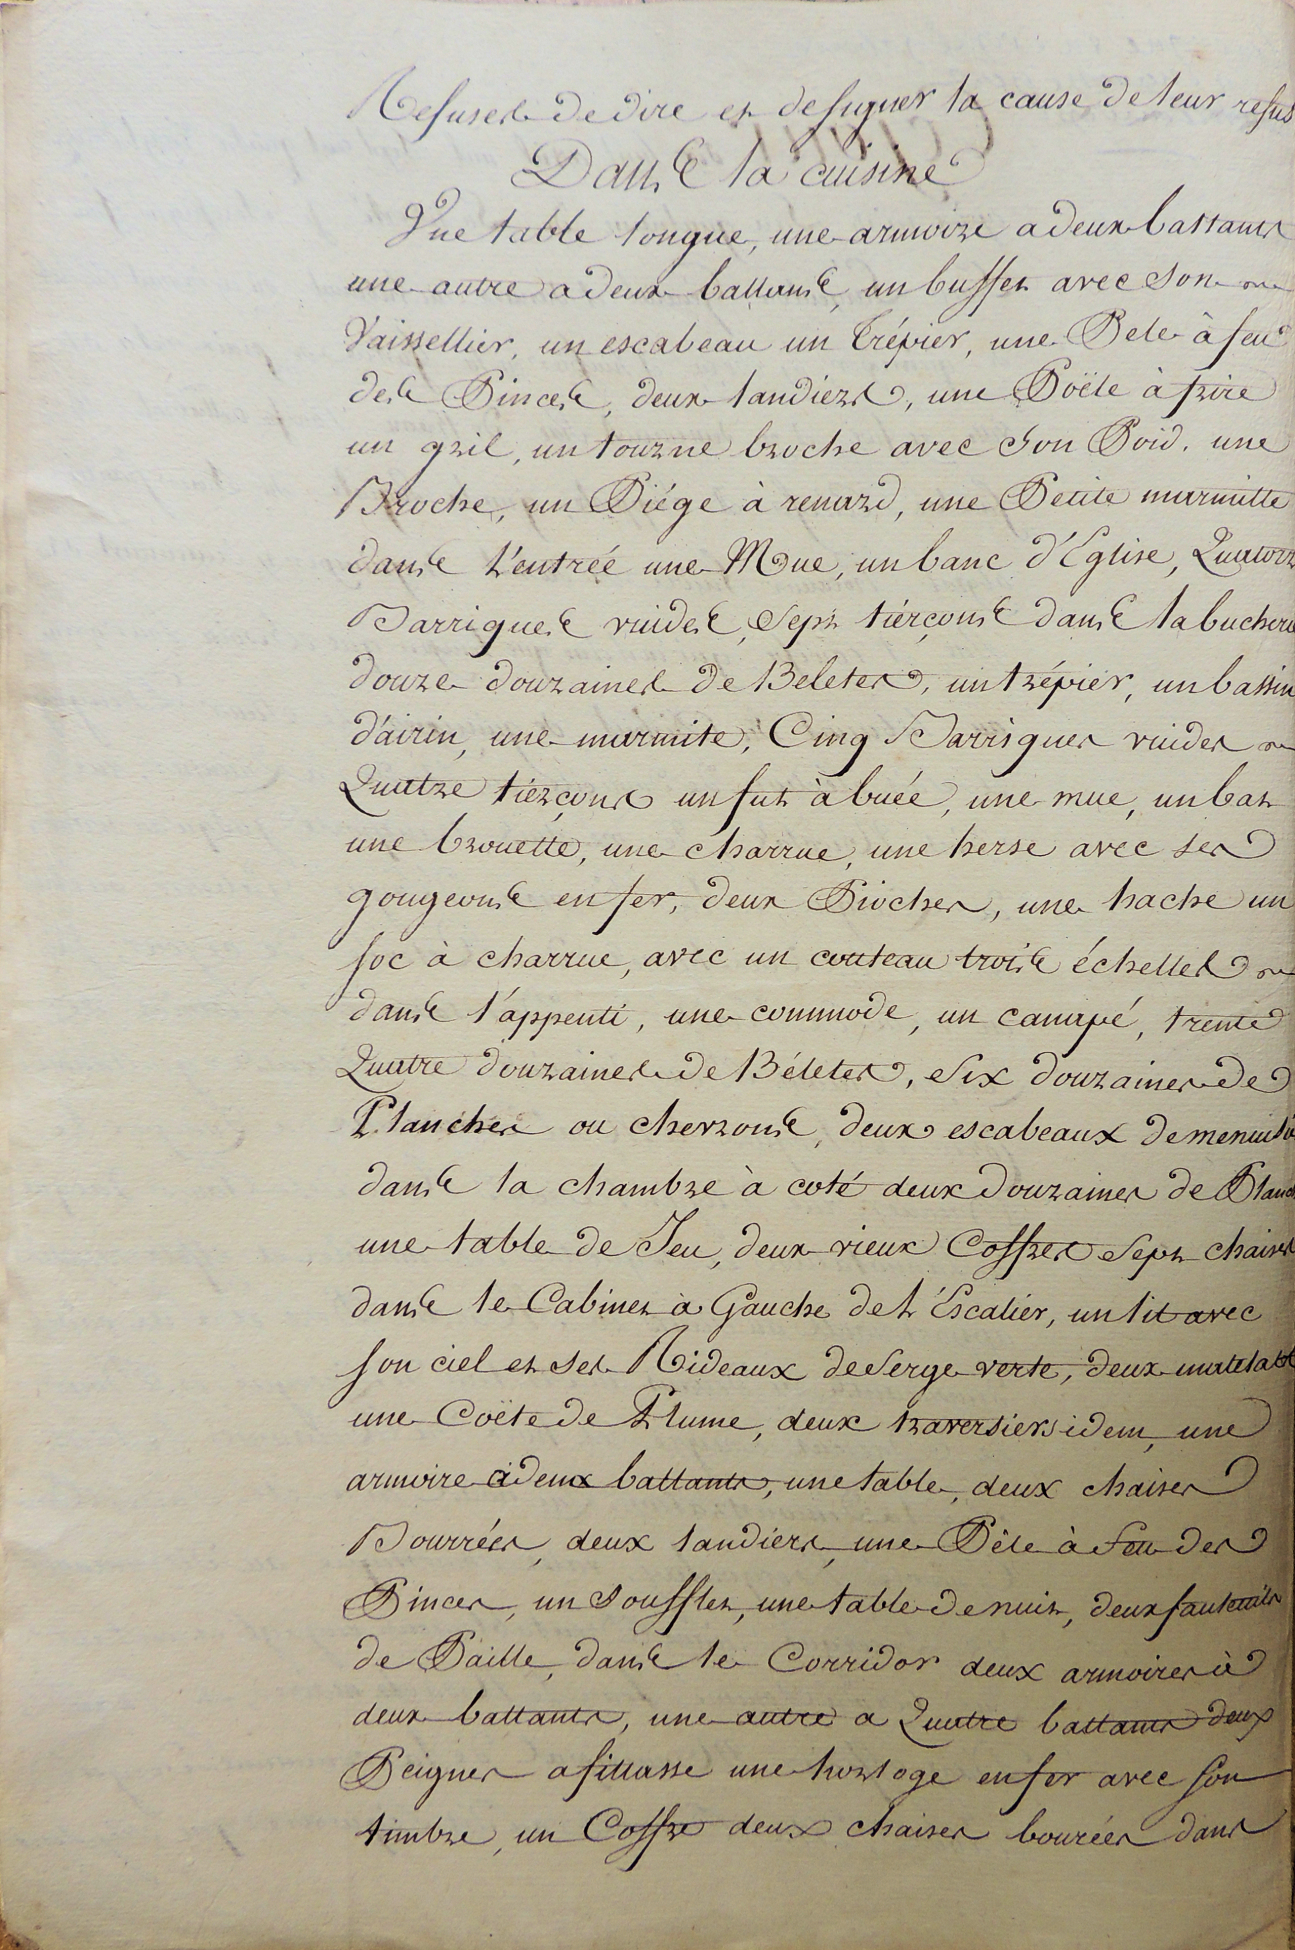 Refuser de dire et de signer la cause de leur refus
Dans la cuisine
Une table longue, une armoire a deux battants
une autre a deux battans, un buffet avec son
Vaissellier, un escabeau un Trépier, une Pele à feu
des Pinces, deux landiers, une Poële à frire
un gril, un tourne broche avec son Poid, une
Broche, un Piége à renard, une Petite marmitte
dans L'entréé une Mue, un banc d'Eglise, Quatorz
Barriques vuides, Sept tiérçons dans la bucherie
douze douzaines de Beletes, un trépiér, un bassin
d'airin, une marmite, Cinq Barriques vuides
Quatre tiérçons un fut à buéé, une mue, un bat
une brouette, une charrue, une herse avec ses
gougeons en fer, deux Pioches, une hache un
soc à charrue, avec un couteau trois échelles
dans l'appenti, une commode, un canapé, trente
Quatre douzaines de Béletes, Six douzaines de
Planches ou chevrons, deux escabeaux de menuisi
dans la chambre à coté deux douzaines de Planc
une table de Jeu, deux vieux Coffres Sept chaises
dans le Cabinet à Gauche de L'Escaliér, un lit avec
son ciel et ses Rideaux de Serge verte, deux matelats
une Coëte de Plume, deux traversiers idem, une
armoire à deux battants, une table, deux chaises
Bourrées, deux landiers, une Pêle à feu des
Pinces, un Soufflet, une table de nuit, deux fauteuils
de Paille, dans le Corridor deux armoires à
deux battants, une autre a Quatre battants deux
Peignes a fillasse une horloge en fer avec son
timbre, un Coffre deux chaises bourées dans